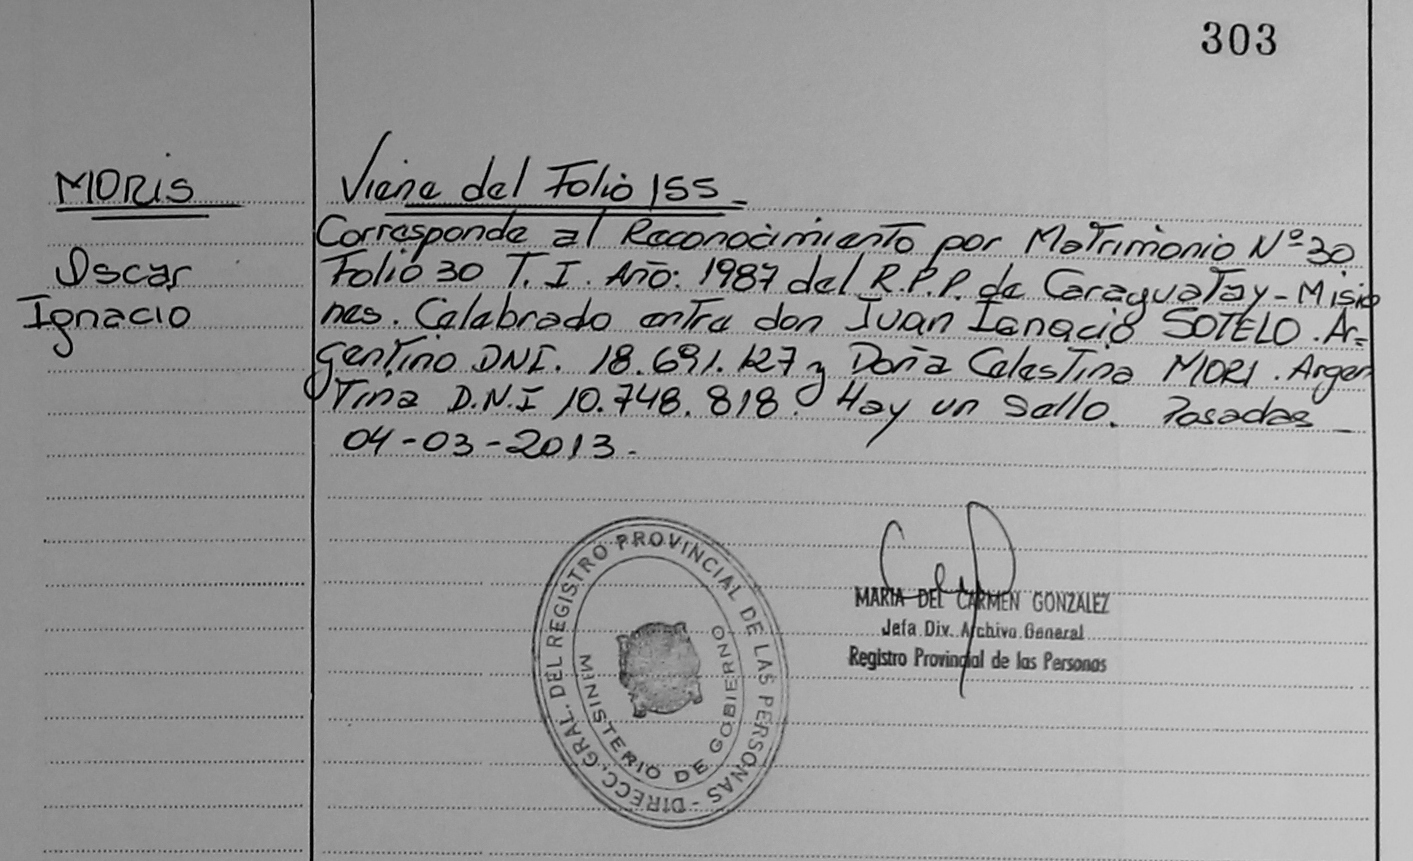 303
MORIS
Oscar
Ignacio
Viene del Folio 155-
Corresponde al Reconocimiento por Matrimonio Nº 30
Folio 30 T. I. Año: 1987 del R.P.P. de Caraguatay - Misio
nes. Celebrado entre don Juan Ignacio SOTELO. Ar=
gentino DNI. 18.691.127 y Doña Celestina MORI. Argen
tina D.N.I 10.748.818. Hay un Sello. Posadas
04-03-2013.
DIRECC. GRAL. DEL REGISTRO PROVINCIAL DE LAS PERSONAS -
MINISTERIO DE GOBIERNO
MARIA DEL CARMEN GONZALEZ
Jefa Div. Archivo General
Registro Provincial de las Personas